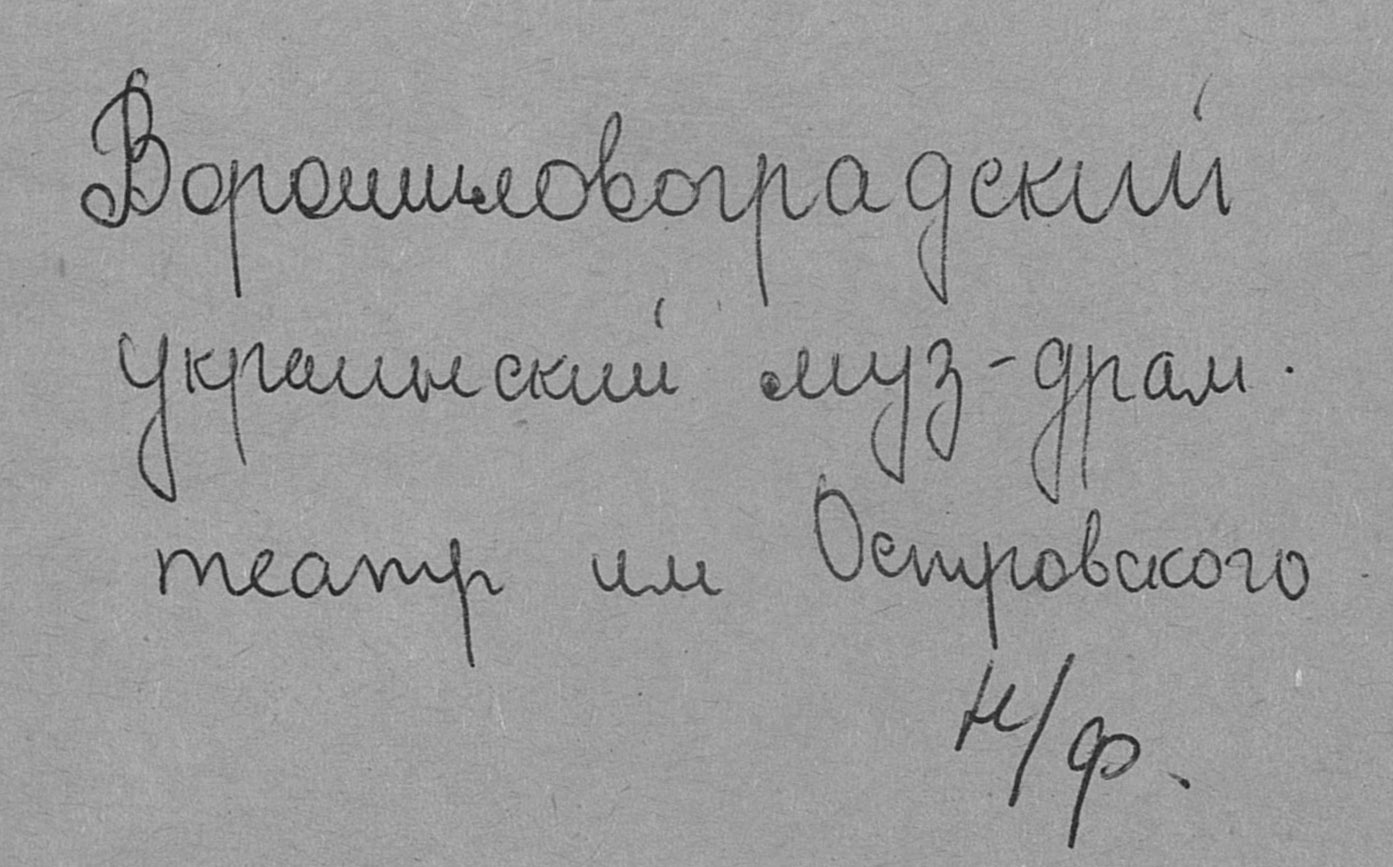 Ворошиловоградский
украинский муз-драм.
театр им Островского
н/ф.